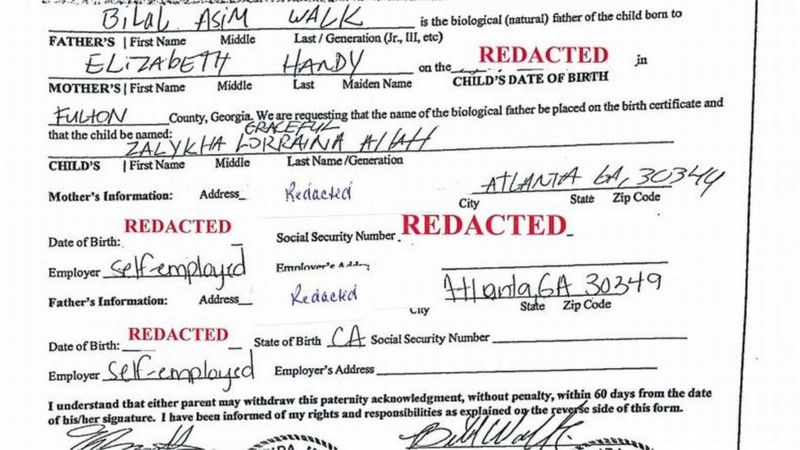 BILAL ASIM WALK is the biological (natural) father of the child born to
FATHER'S | First Name Middle Last / Generation (Jr., III, etc)
ELIZABETH HANDY on the REDACTED in
MOTHER'S | First Name Middle Last Maiden Name CHILD'S DATE OF BIRTH
FULTON County, Georgia. We are requesting that the name of the biological father be placed on the birth certificate and
that the child be named: GRACEFUL
ZALYKHA LORRAINA AllAH
CHILD'S | First Name Middle Last Name /Generation
Mother's Information: Address Redacted ATLANTA GA, 30349
City State Zip Code
Date of Birth: REDACTED Social Security Number REDACTED
Employer self-employed Employer's Addre
Father's Information: Address Redacted Atlanta, GA 30349
City State Zip Code
Date of Birth: REDACTED State of Birth CA Social Security Number
Employer self-employed Employer's Address
I understand that either parent may withdraw this paternity acknowledgment, without penalty, within 60 days from the date
of his/her signature. I have been informed of my rights and responsibilities as explained on the reverse side of this form.